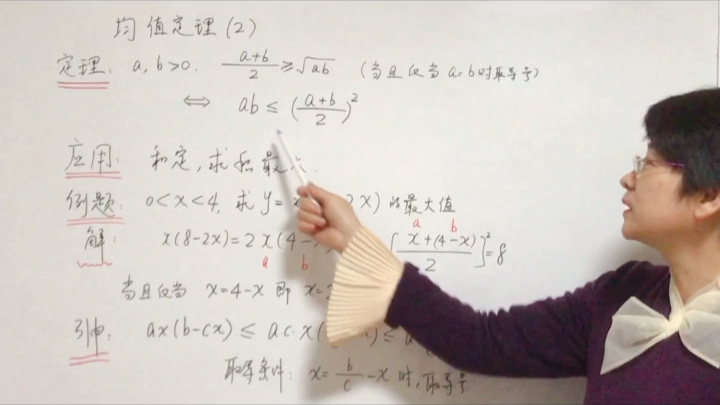 均值定理(2)
定理: a, b>0. (a+b)/2 ≥ √ab (当且仅当 a=b时取等号)
⟺ ab ≤ ((a+b)/2)²
应用: 和定,求积最
例题: 0<x<4, 求 y= 2x) 的最大值
a b
解: x(8-2x)=2x(4- [(x+(4-x))/2]²=8
a b
当且仅当 x=4-x 即 x=
引申: ax(b-cx) ≤ ac·x( ≤ a
取等条件: x= b/c -x 时,取等号